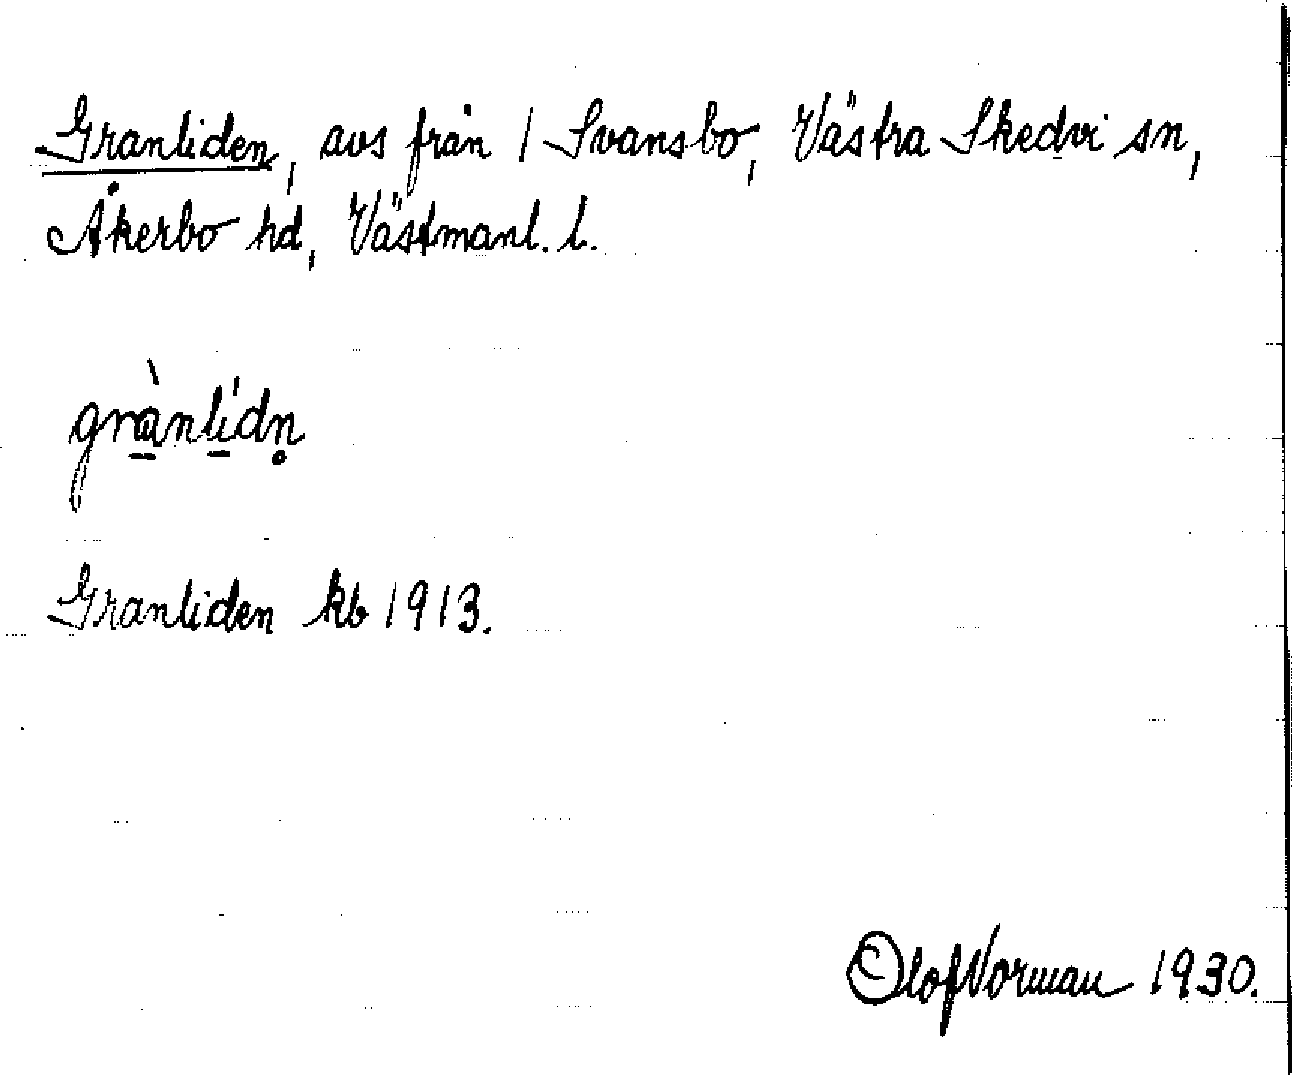 Granliden, avs från 1 Svansbo, Västra Skedvi sn,
Åkerbo hd, Västmanl. l.
grànlídn̥
Granliden kb 1913.
Olof Norman 1930.